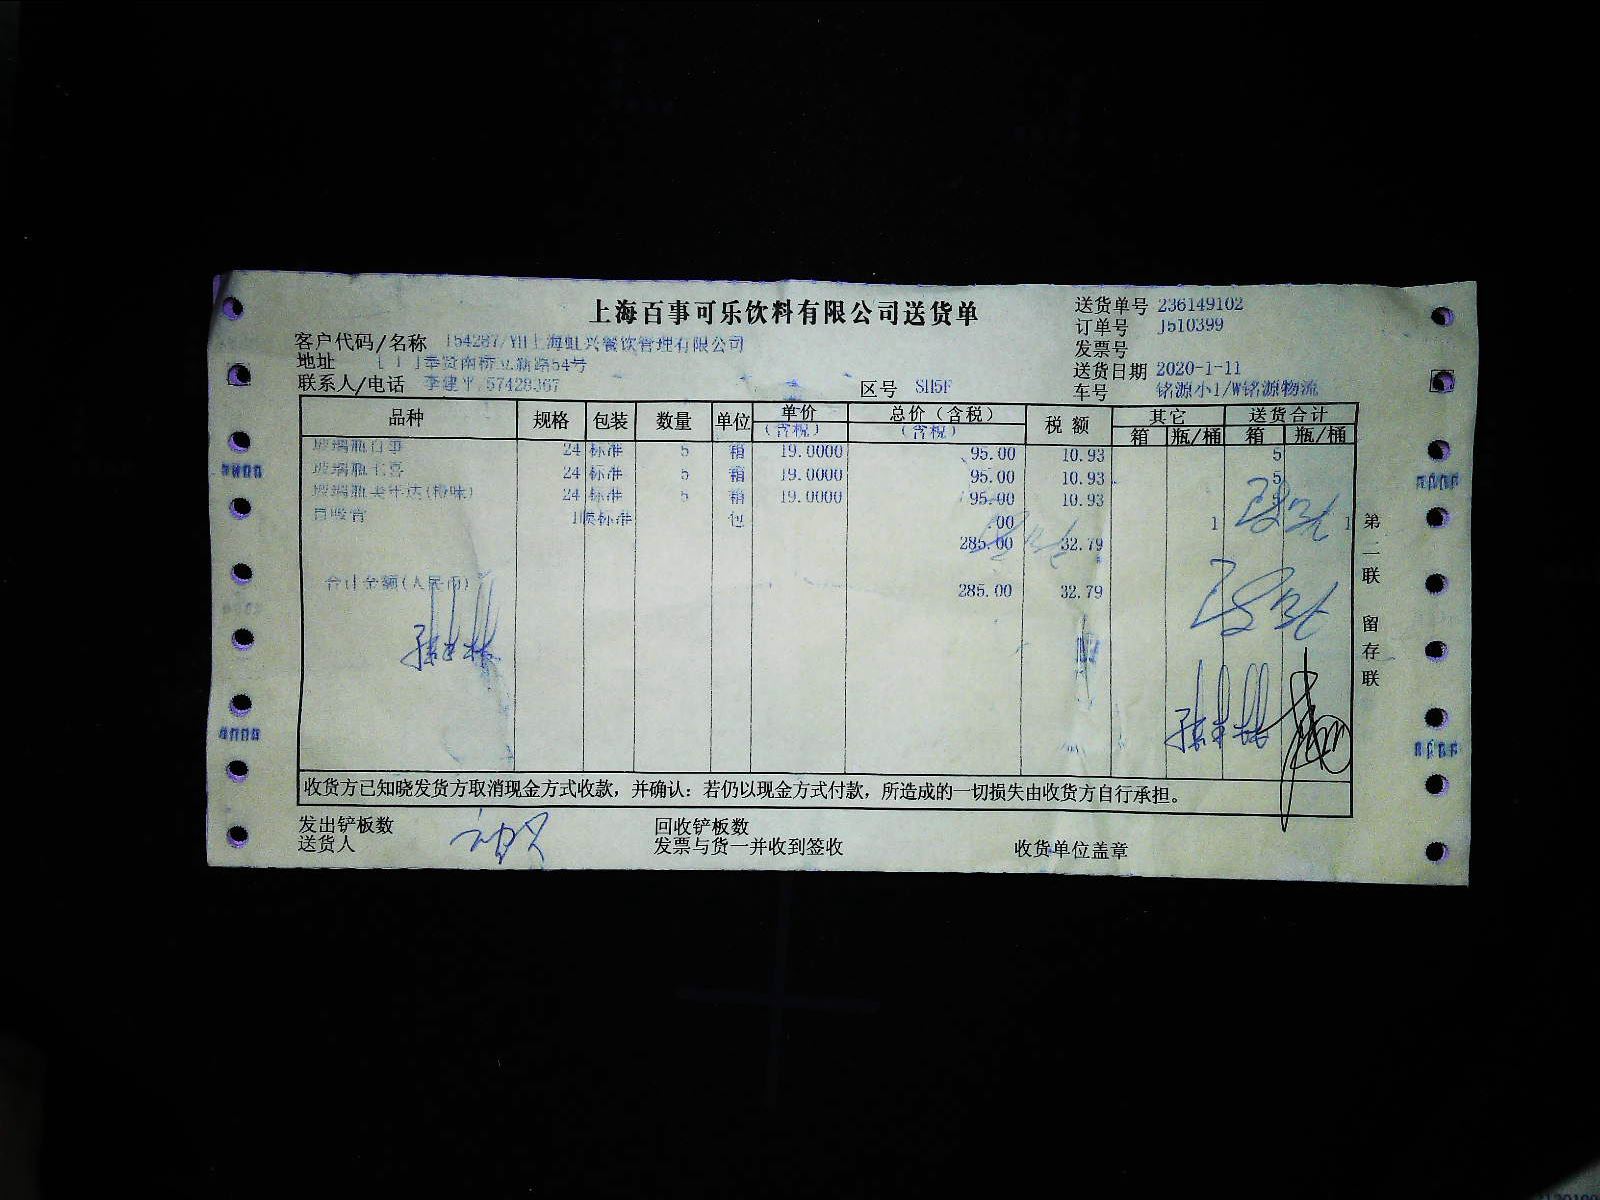 上海百事可乐饮料有限公司送货单
送货单号 236149102
订单号 J510399
发票号
送货日期 2020-1-11
车号 铭源小1/W铭源物流
客户代码/名称 154287/YH上海虹兴餐饮管理有限公司
地址 奉贤南桥立新路54号
联系人/电话 李建平,57429367
区号 SH5F
品种 规格 包装 数量 单位 单价(含税) 总价(含税)(含税) 税额 其它 送货合计
箱 瓶/桶 箱 瓶/桶
玻璃瓶百事 24 标准 5 箱 19.0000 95.00 10.93 5
玻璃瓶七喜 24 标准 5 箱 19.0000 95.00 10.93 5
玻璃瓶美年达(橙味) 24 标准 5 箱 19.0000 95.00 10.93
吸管 1 标准 包 00 1 1
285.00 32.79
合计金额(人民币) 285.00 32.79
第二联 留存联
收货方已知晓发货方取消现金方式收款，并确认：若仍以现金方式付款，所造成的一切损失由收货方自行承担。
发出铲板数 回收铲板数
送货人 发票与货一并收到签收 收货单位盖章